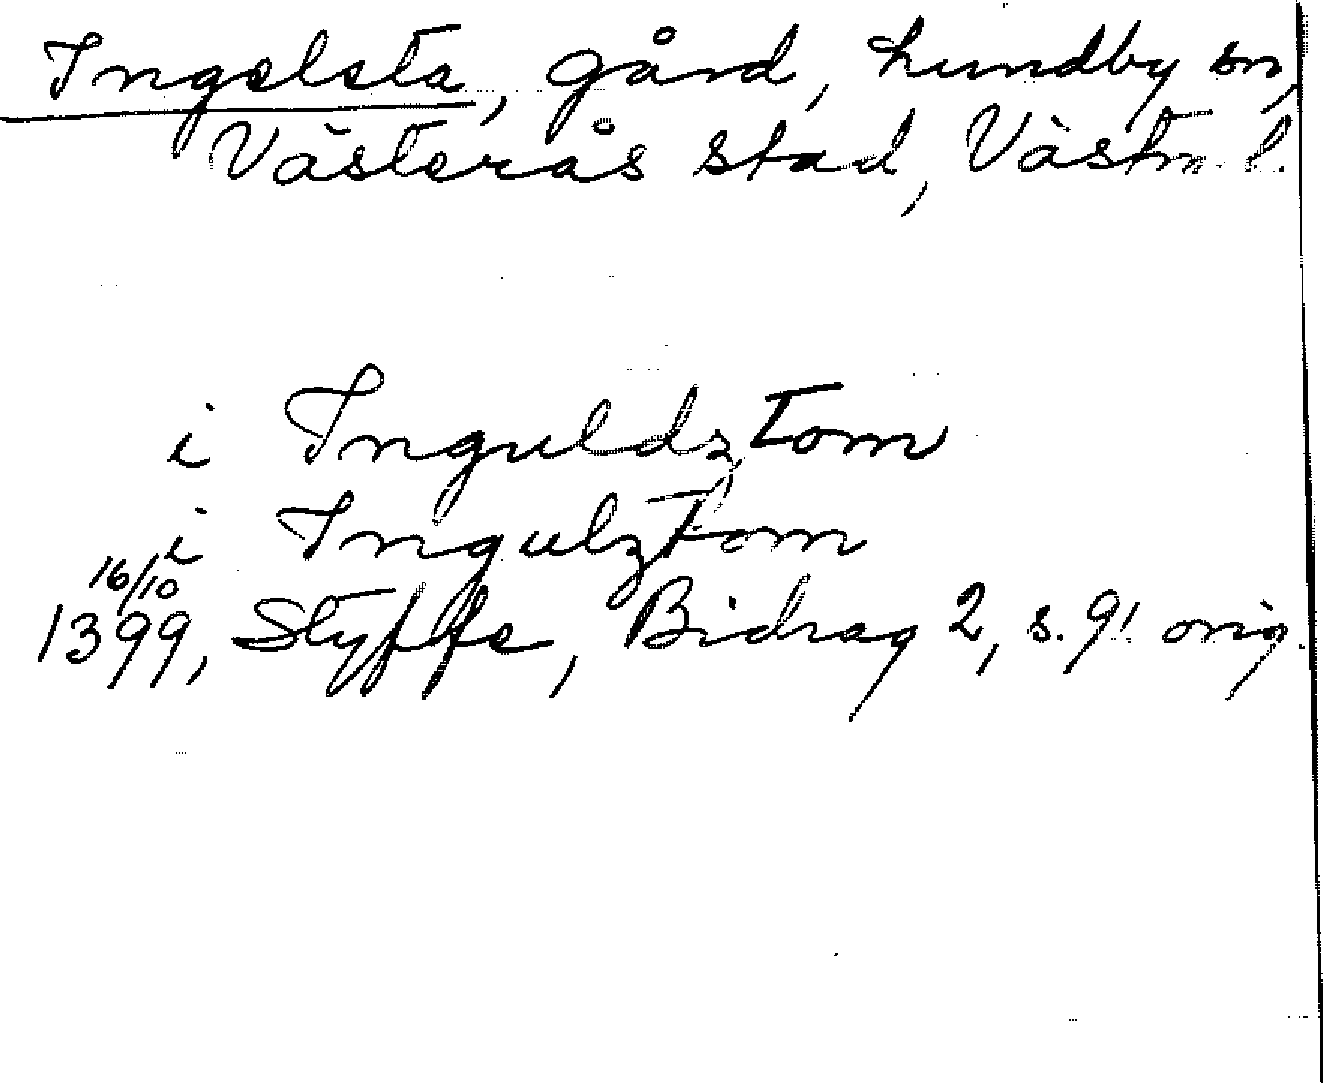 Ingelsta, gård, Lundby sn,
Västerås stad, Västm. l.
i Inguldztom
i Ingulztom
16/10
1399, Styffe, Bidrag 2, s. 9! orig.